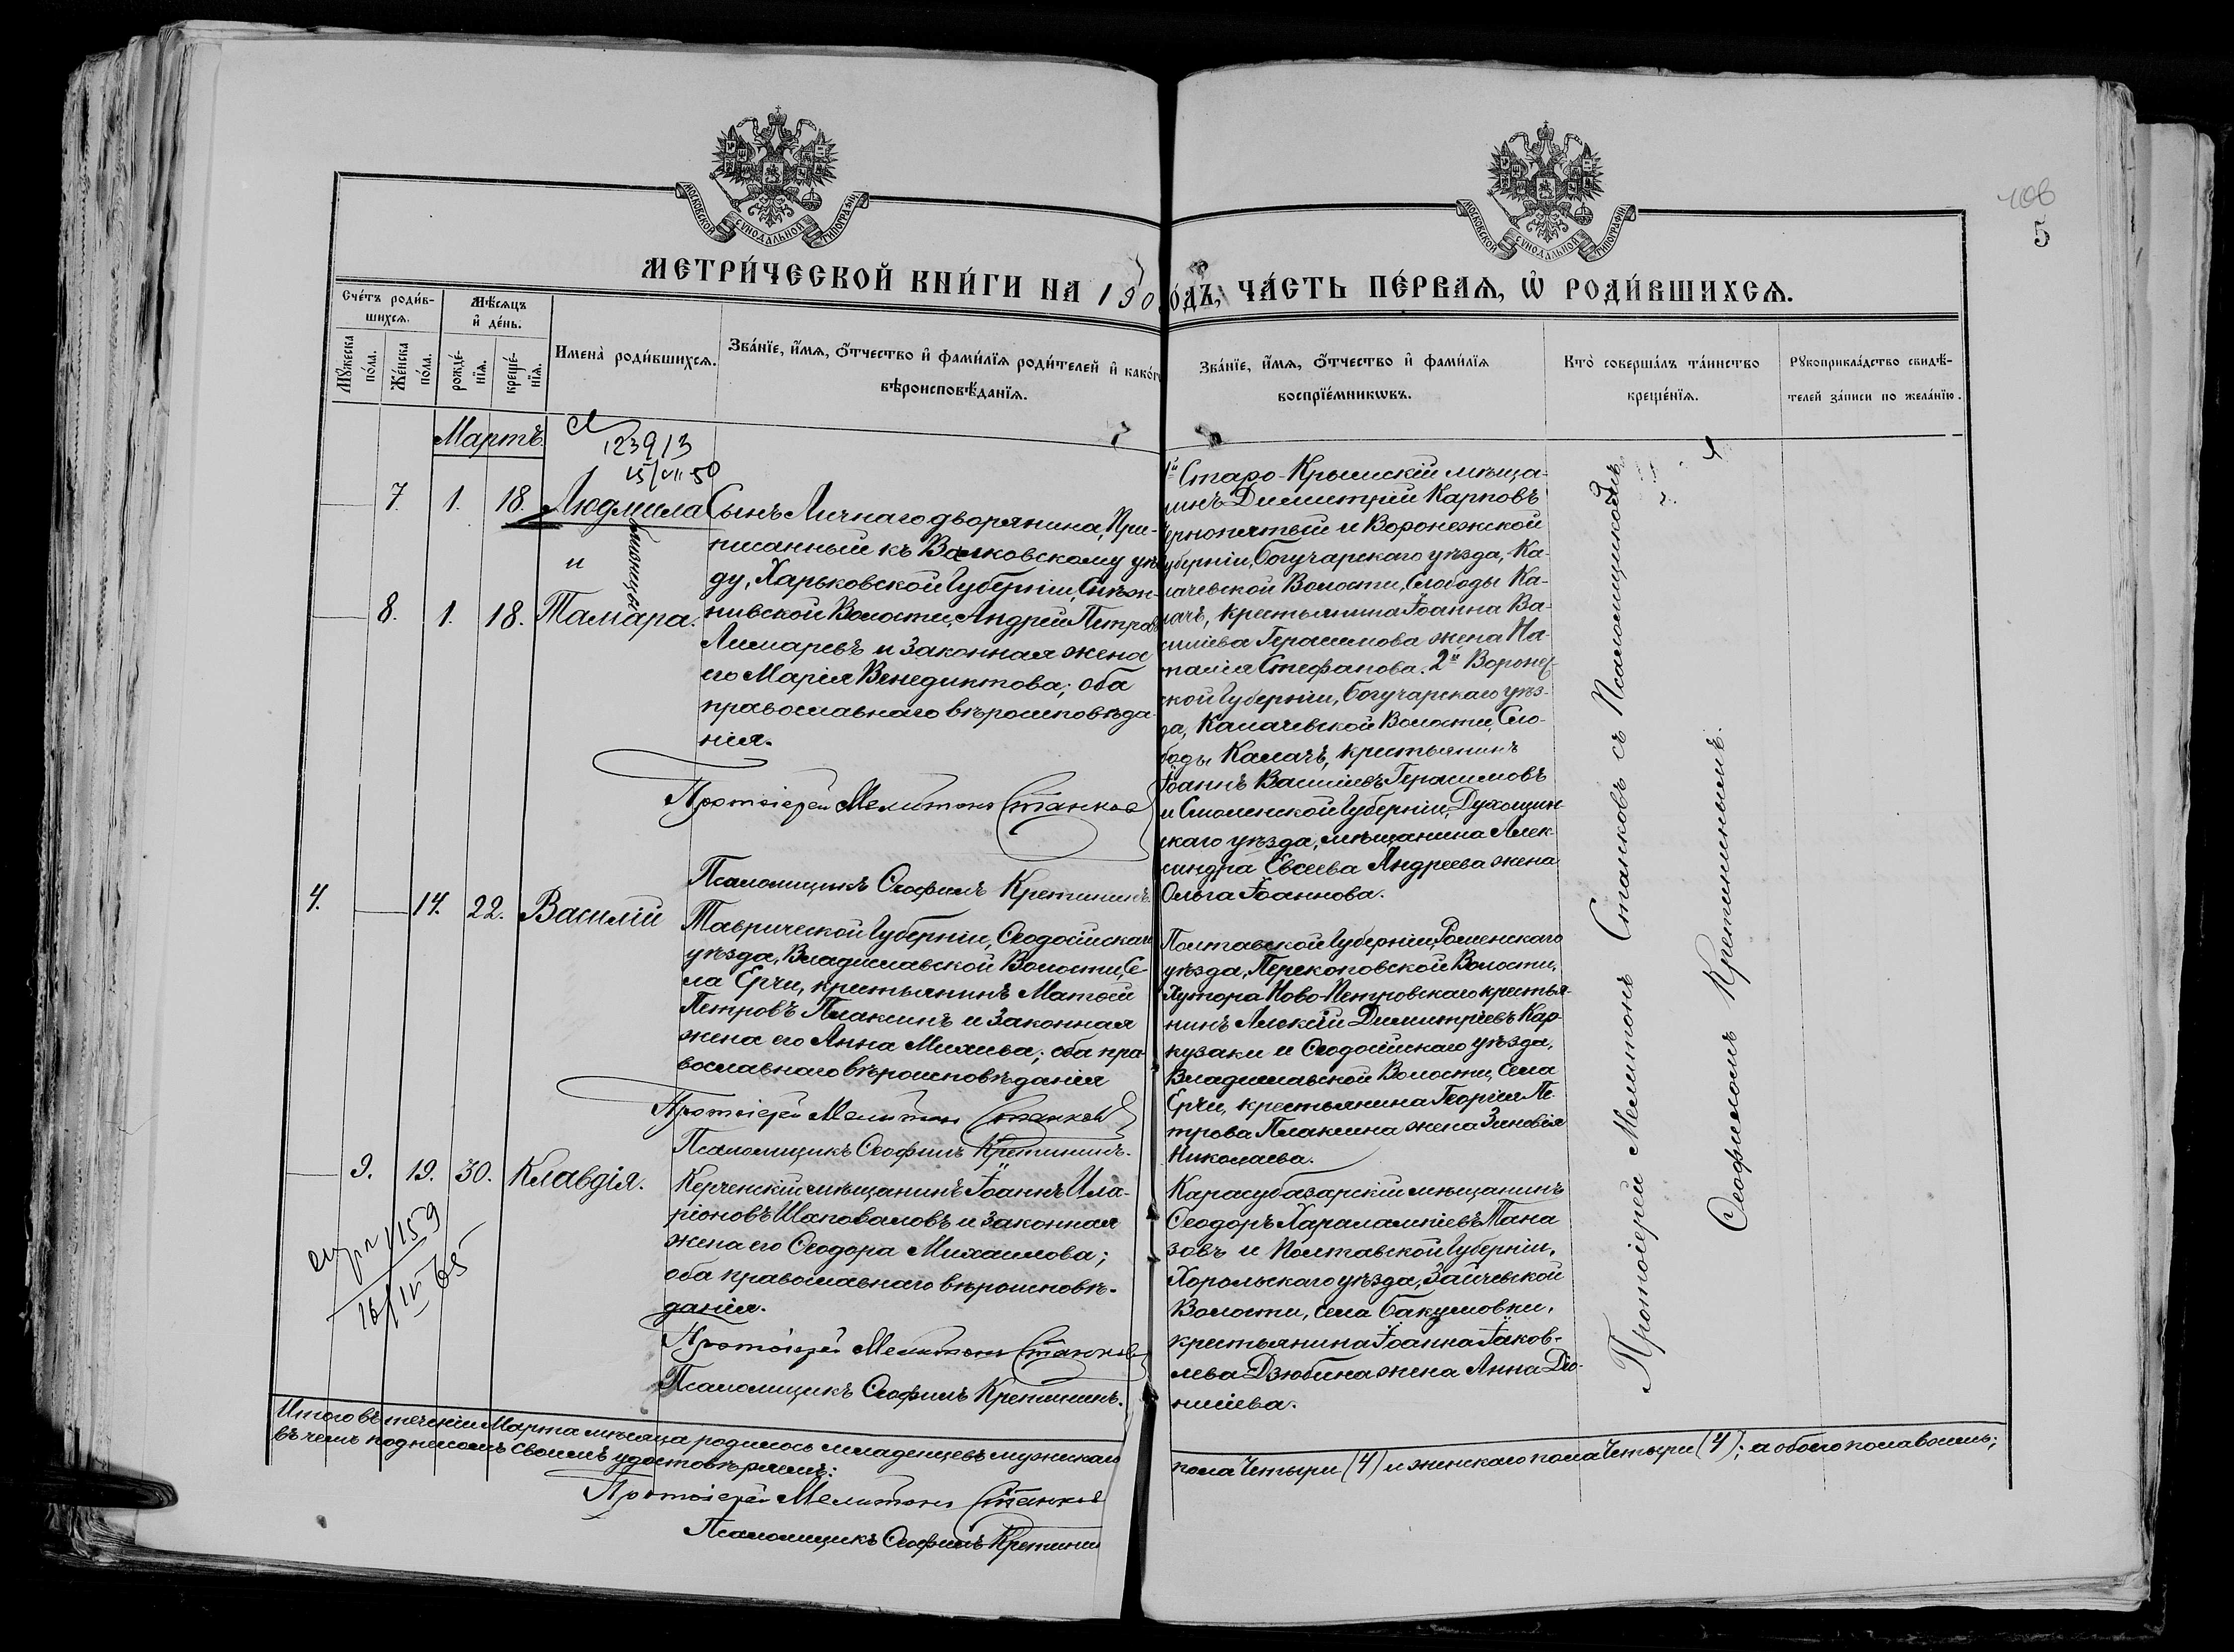 МОСКОВСКОЙ СѴНОДАЛЬНОЙ ТИПОГРАФІИ
МОСКОВСКОЙ СѴНОДАЛЬНОЙ ТИПОГРАФІИ
5
МЕТРИ́ЧЕСКОЙ КНИ́ГИ НА 190
ОДЪ, ЧА́СТЬ ПЕ́РВАѦ, Ѽ РОДИ́ВШИХСѦ.
Сче́тъ роди́в-
шихсѧ.
Мꙋ́жеска по́ла.
Же́нска по́ла.
Мѣ́сѧцъ
и҆ де́нь.
рожде́-
нїѧ.
креще́-
нїѧ.
Имена̀ роди́вшихсѧ.
Зва́нїе, и҆́мѧ, ѻ҆́тчество и҆ фами́лїѧ роди́телей и҆ како́г
вѣроисповѣ́данїѧ.
Зва́нїе, и҆́мѧ, ѻ҆́тчество и҆ фами́лїѧ
воспрїе́мникѡвъ.
Кто̀ соверша́лъ та́инство
креще́нїѧ.
Рꙋкоприкла́дство свидѣ́-
телей за́писи по жела́нїю.
Мартъ.
123913
15/VII 50
7. 1. 18. Людмила
и
близнецы
8. 1. 18. Тамара.
Сынъ Личнаго дворянина, При-
писанный къ Валковскому уѣ
ду, Харьковской Губерніи, Снѣж-
нивской Волости, Андрей Петров
Лимаревъ и законная жена
его Марія Венедиктова; оба
православнаго вѣроисповѣда-
нія.
Протоіерей Мелитонъ Станков
Псаломщикъ Ѳеофилъ Кретининъ.
1й Старо-Крымскій мѣща-
нинъ Димитрій Карповъ
Чернопятый и Воронежской
Губерніи, Богучарскаго уѣзда, Ка-
лачевской Волости, Слободы Ка-
лачъ, крестьянина Іоанна Ва-
силіева Герасимова жена На-
талія Стефанова. 2й Воронеж-
ской Губерніи, Богучарскаго уѣз-
да, Калачевской Волости, Сло-
боды Калачъ, крестьянинъ
Іоаннъ Василіевъ Герасимовъ
и Смоленской Губерніи, Духощин-
скаго уѣзда, мѣщанина Алек-
сандра Евсеева Андреева жена
Ольга Іоаннова.
4. 14. 22. Василій
Таврической Губерніи, Ѳеодосійскаго
уѣзда, Владиславской Волости, Се-
ла Ерчи, крестьянинъ Матѳій
Петровъ Плаксинъ и законная
жена его Анна Михеива; оба пра-
вославнаго вѣроисповѣданія
Протоіерей Мелитонъ Станков
Псаломщикъ Ѳеофилъ Кретининъ.
Полтавской Губерніи, Роменскаго
уѣзда, Перекоповской Волости,
Хутора Ново-Петровскаго крестья-
нинъ Алексій Димитріевъ Кар-
кузаки и Ѳеодосійскаго уѣзда,
Владиславской Волости, Села
Ерчи, крестьянина Георгія Пе-
трова Плаксина жена Зиновія
Николаева.
9. 19. 30. Клавдія.
1159
16/IV 65
Керченскій мѣщанинъ Іоаннъ Ила-
ріоновъ Шаповаловъ и законная
жена его Ѳеодора Михаилова;
оба православнаго вѣроисповѣ-
данія.
Протоіерей Мелитонъ Станков
Псаломщикъ Ѳеофилъ Кретининъ.
Карасубазарскій мѣщанинъ
Ѳеодоръ Харалампіевъ Тана
зовъ и Полтавской Губерніи,
Хорольскаго уѣзда, Зайчевской
Волости, села Бакумовки,
крестьянина Іоанна Іаков-
лева Дзюбина жена Анна Діо-
нисіева.
Протоіерей Мелитонъ Станковъ съ Псаломщикомъ
Ѳеофиломъ Кретининымъ.
Итого въ теченіи Марта мѣсяца родилось младенцевъ мужескаго
пола Четыри (4) и женскаго пола Четыри (4); а обоего пола восемь;
въ чемъ подписомъ своимъ удостовѣряемъ:
Протоіерей Мелитонъ Станков
Псаломщикъ Ѳеофилъ Кретинин